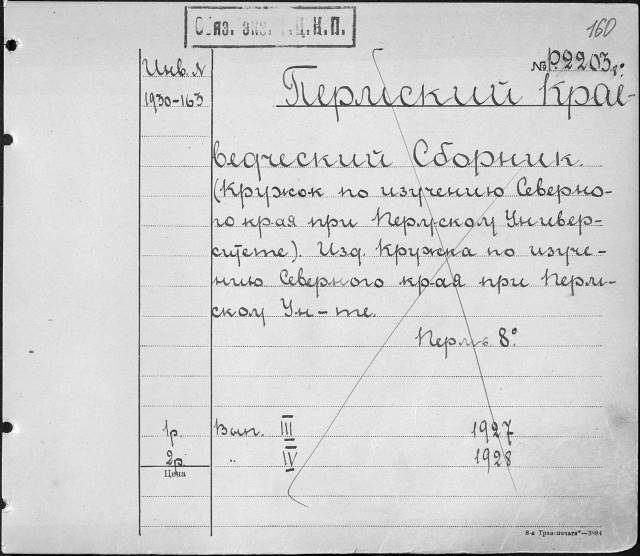 Обяз. экз. Г.Ц.К.П.
160
Инв. №
№ Р2203 8°
1930-163
Пермский Крае-
ведческий Сборник.
(Кружок по изучению Северно-
го края при Пермском Универ-
ситете). Изд. Кружка по изуче-
нию Северного края при Перм-
ском Ун-те.
Пермь 8°.
1р. Вып. III 1927
2р. " IV 1928
Цена